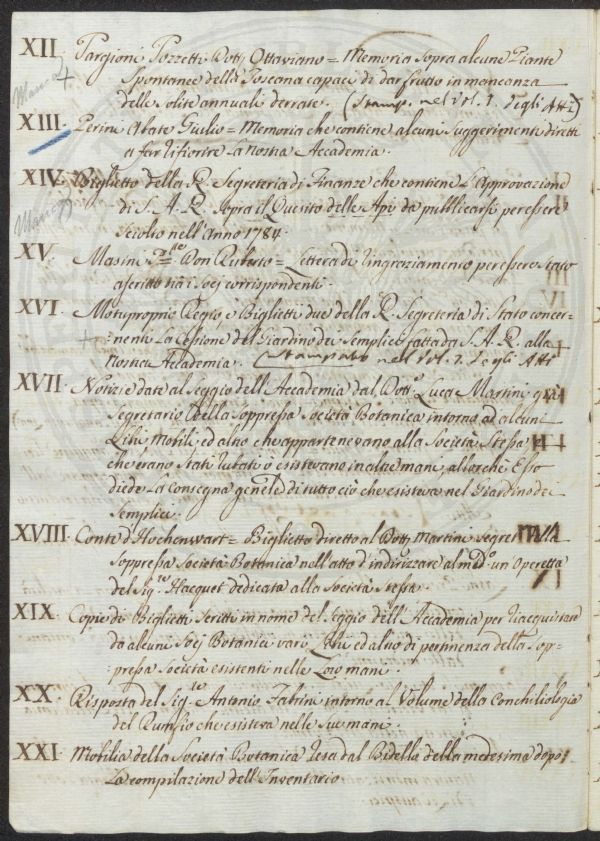 XII. Targioni Tozzetti Dott. Ottaviano = Memoria sopra alcune Piante
Manca
spontanee della Toscana capaci di dar frutto in mancanza
delle solite annuali derrate. (Stamp. nel Vol. 1. degli Atti)
XIII. Perini Abate Giulio = Memoria che contiene alcuni suggerimenti diretti
a far rifiorire la nostra Accademia.
XIV. Biglietto della R. Segreteria di Finanze che contiene l'Approvazione
Manca
di S. A. R. sopra il Quesito delle Api da pubblicarsi per essere
sciolto nell'anno 1784.
XV. Masini Don Ruberto = Lettera di ringraziamento per essere stato
ascritto tra i Socj corrispondenti.
XVI. Motuproprio Regio, e Biglietti due della R. Segreteria di Stato concer-
nenti la Cessione del Giardino dei Semplici fatta da S. A. R. alla
nostra Accademia. (Stampato nel Vol. 2. degli Atti
XVII. Notizie date al Seggio dell'Accademia dal Dott. Luca Martini già
Segretario della soppressa Società Botanica intorno ad alcuni
Libri mobili ed altro che appartenevano alla Società stessa e
che erano stati rubati o esistevano in altre mani, allorchè Esso
diede la consegna genle di tutto ciò che esisteva nel Giardino dei
Semplici.
XVIII. Conte d'Hochenwart = Biglietto diretto al Dott. Martini Segret
soppressa Società Botanica nell'atto d'indirizzare al md.o un'Operetta
del Sig.re Hacquet dedicata alla Società stessa.
XIX. Copie di Biglietti scritti in nome del Seggio dell'Accademia per riacquistare
da alcuni Socj Botanici varj Libri ed altro di pertinenza della sop-
pressa Società esistenti nelle loro mani.
XX. Risposta del Sig.re Antonio Fabrini intorno al Volume della Conchiliologia
del Rumfio che esisteva nelle sue mani.
XXI. Mobilia della Società Botanica resa dal Bidello della medesima dopo
la compilazione dell'Inventario.